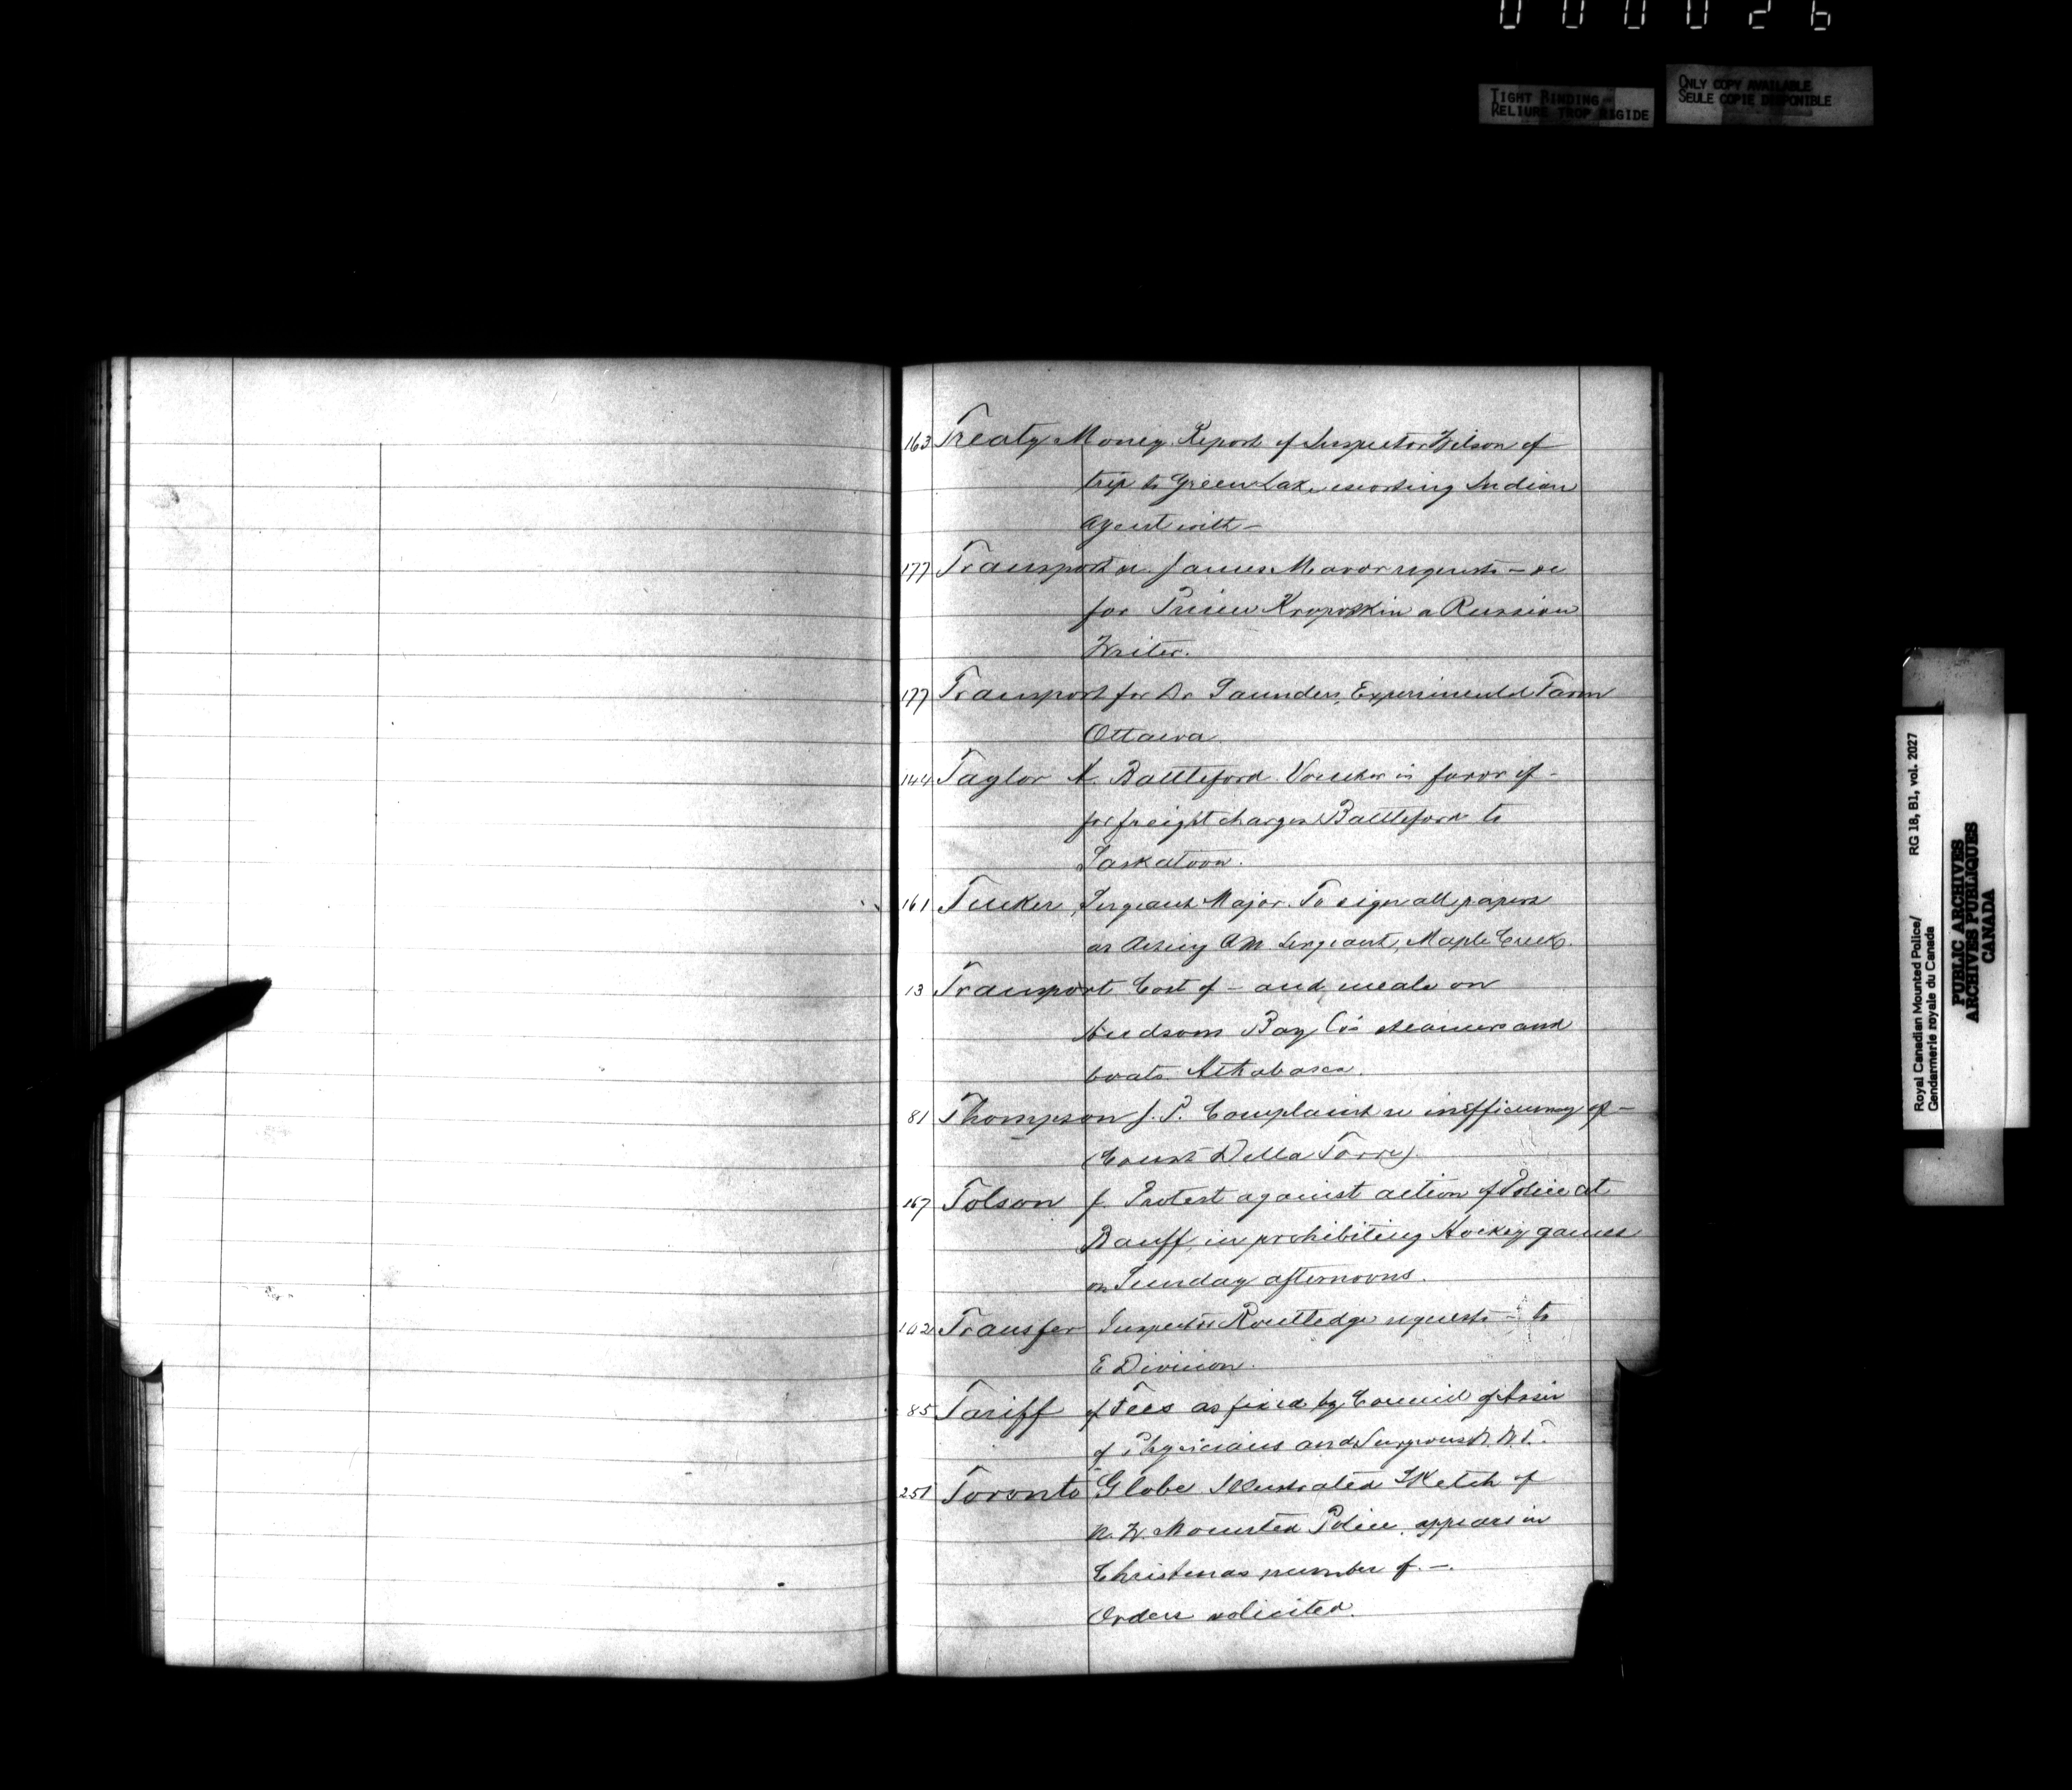 000026
TIGHT BINDING
RELIURE TROP RIGIDE
ONLY COPY AVAILABLE
SEULE COPIE DISPONIBLE
163 Treaty Money. Report of Inspector Wilson of
trip to Green Lake, escorting Indian
agent with —
177 Transport &c. James Mavor requests — &c
for Prince Kropotkin a Russian
Writer.
177 Transport for Dr Saunders, Experimental Farm
Ottawa
144 Taylor A. Battleford. Voucher in favor of —
for freight charges Battleford to
Saskatoon.
161 Tucker, Sergeant Major. To sign all papers
as Acting Q.M. Sergeant, Maple Creek.
13 Transport. Cost of — and meals on
Hudsons Bay Co's steamers and
boats. Athabasca.
81 Thompson J.P. Complaint re inefficiency of —
(Count Della Torre)
167 Tolson J. Protest against action of Police at
Banff, in prohibiting Hockey games
on Sunday afternoons.
102 Transfer Inspector Routledge requests — to
E Division.
85 Tariff of Fees as fixed by Council of Assn
of Physicians and Surgeons N.W.T.
251 Toronto Globe Illustrated Sketch of
N.W. Mounted Police, appears in
Christmas number of —.
Orders solicited.
Royal Canadian Mounted Police/
Gendarmerie royale du Canada
RG 18, B1, vol. 2027
PUBLIC ARCHIVES
ARCHIVES PUBLIQUES
CANADA